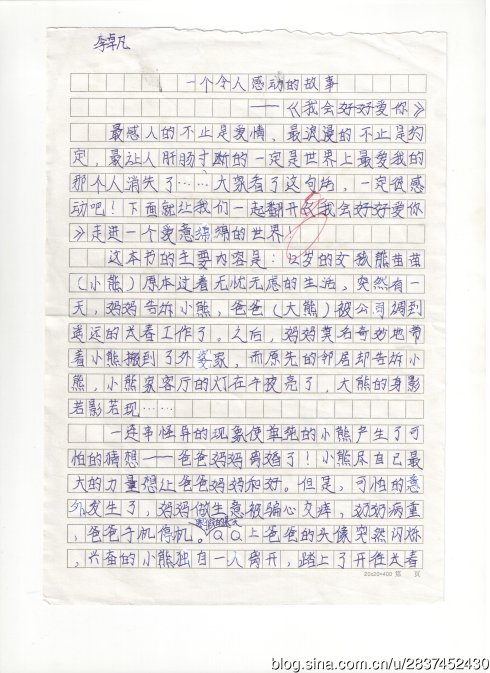 李卓凡
一个令人感动的故事
——《我会好好爱你》
最感人的不止是爱情，最浪漫的不止是约
定，最让人肝肠寸断的一定是世界上最爱我的
那个人消失了……大家看了这句话，一定很感
动吧！下面就让我们一起翻开《我会好好爱你
》走进一个爱意绵绵的世界！
这本书的主要内容是：12岁的女孩熊苗苗
（小熊）原本过着无忧无虑的生活，突然有一
天，妈妈告诉小熊，爸爸（大熊）被公司调到
遥远的长春工作了。之后，妈妈莫名奇妙地带
着小熊搬到了外婆家，而原先的邻居却告诉小
熊，小熊家客厅的灯在半夜亮了，大熊的身影
若影若现……
一连串怪异的现象使单纯的小熊产生了可
怕的猜想——爸爸妈妈离婚了！小熊尽自己最
大的力量想让爸爸妈妈和好。但是，可怕的意
外发生了，妈妈做生意被骗心交瘁，奶奶病重
，爸爸手机停机。QQ上爸爸的头像突然闪烁
，兴奋的小熊独自一人离开，踏上了开往长春
20×20=400 第 页
blog.sina.com.cn/u/2837452430